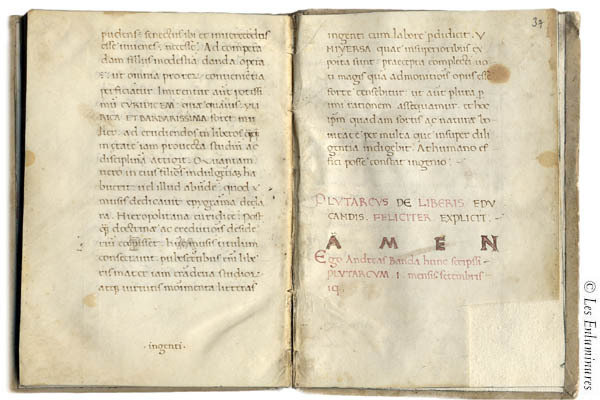 pudens: senectusibi et mucredotius
esse iniciens necesse. Ad compera
dam filiis modestia danda opera
e: ut omnia propter convenientia
perficiatur limitentur aut potissi
mũ EVRIDICEM: quae quãuis YLI
RICA ET BARBARISSIMA foret mu
lier. ad erudiendos tñ liberos ẽt
in etate iam provecta studiũ ac
disciplina attigit. Quantam
vero in eius filios indulgentiã ha
buerit: vel illud abunde: quod
musis dedicavit epygrãma decla
ra. Hieropolitana euridice: Post
q̃ doctrina ac eruditiõis deside
riũ cepisset: huiusmusis titulum
consecravit. pubescentibus eni libe
ris mater iam tradenda studior
atq virtutis monimenta litteras
·ingenti·
37
ingenti cum labore pdidicit. V
NIVERSA quae insuperioribus ex
posita sunt: praecepta complecti uo
ti magis quã admonitiõis opus esse
forte censebitur. ut aut plura pri
mi rationem assequamur. et hoc
ipm quidam sortis ac naturae bo
nitate per multa que insuper dili
gentia indigebit. At humano ef
fici posse constat ingenio:
PLUTARCVS DE LIBERIS EDV
CANDIS. FELICITER EXPLICIT.
AMEN
Ego Andreas Banda hunc scripsi
PLVTARCVM. 1. mensis settenbris
© Les Enluminures